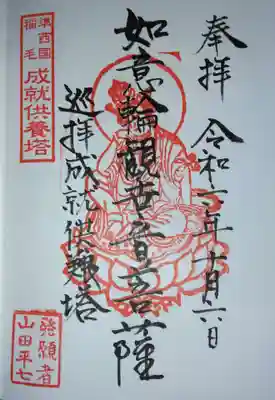 奉拝
令和二年十月六日
如意輪観世音菩薩
巡拝成就供養塔
準西国
稲毛
成就供養塔
発願者
山田平七